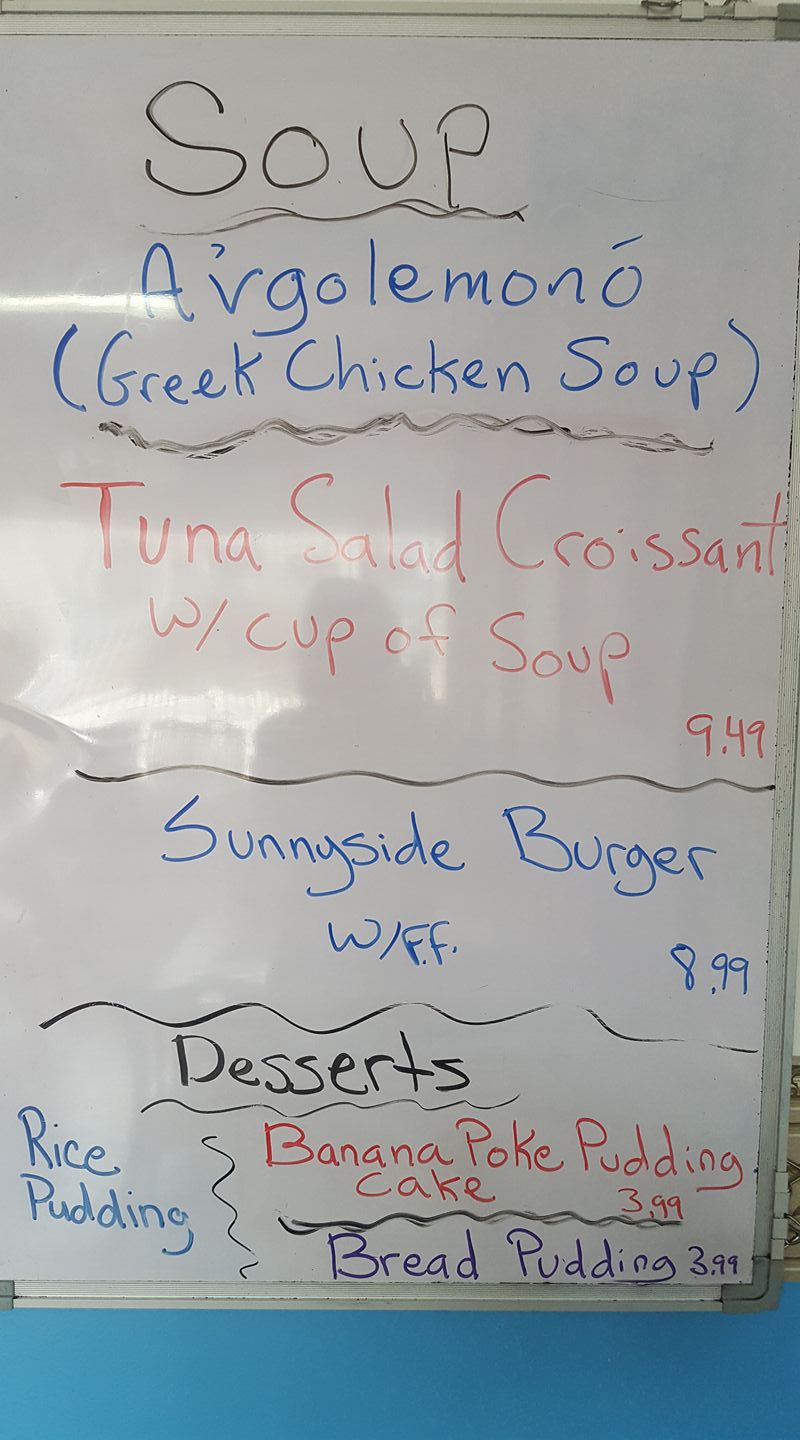 Soup
A'rgolemonó
(Greek Chicken Soup)
Tuna Salad Croissant
w/ cup of Soup
9.49
Sunnyside Burger
w/F.F.
8.99
Desserts
Rice
Pudding
Banana Poke Pudding
cake
3.99
Bread Pudding 3.99